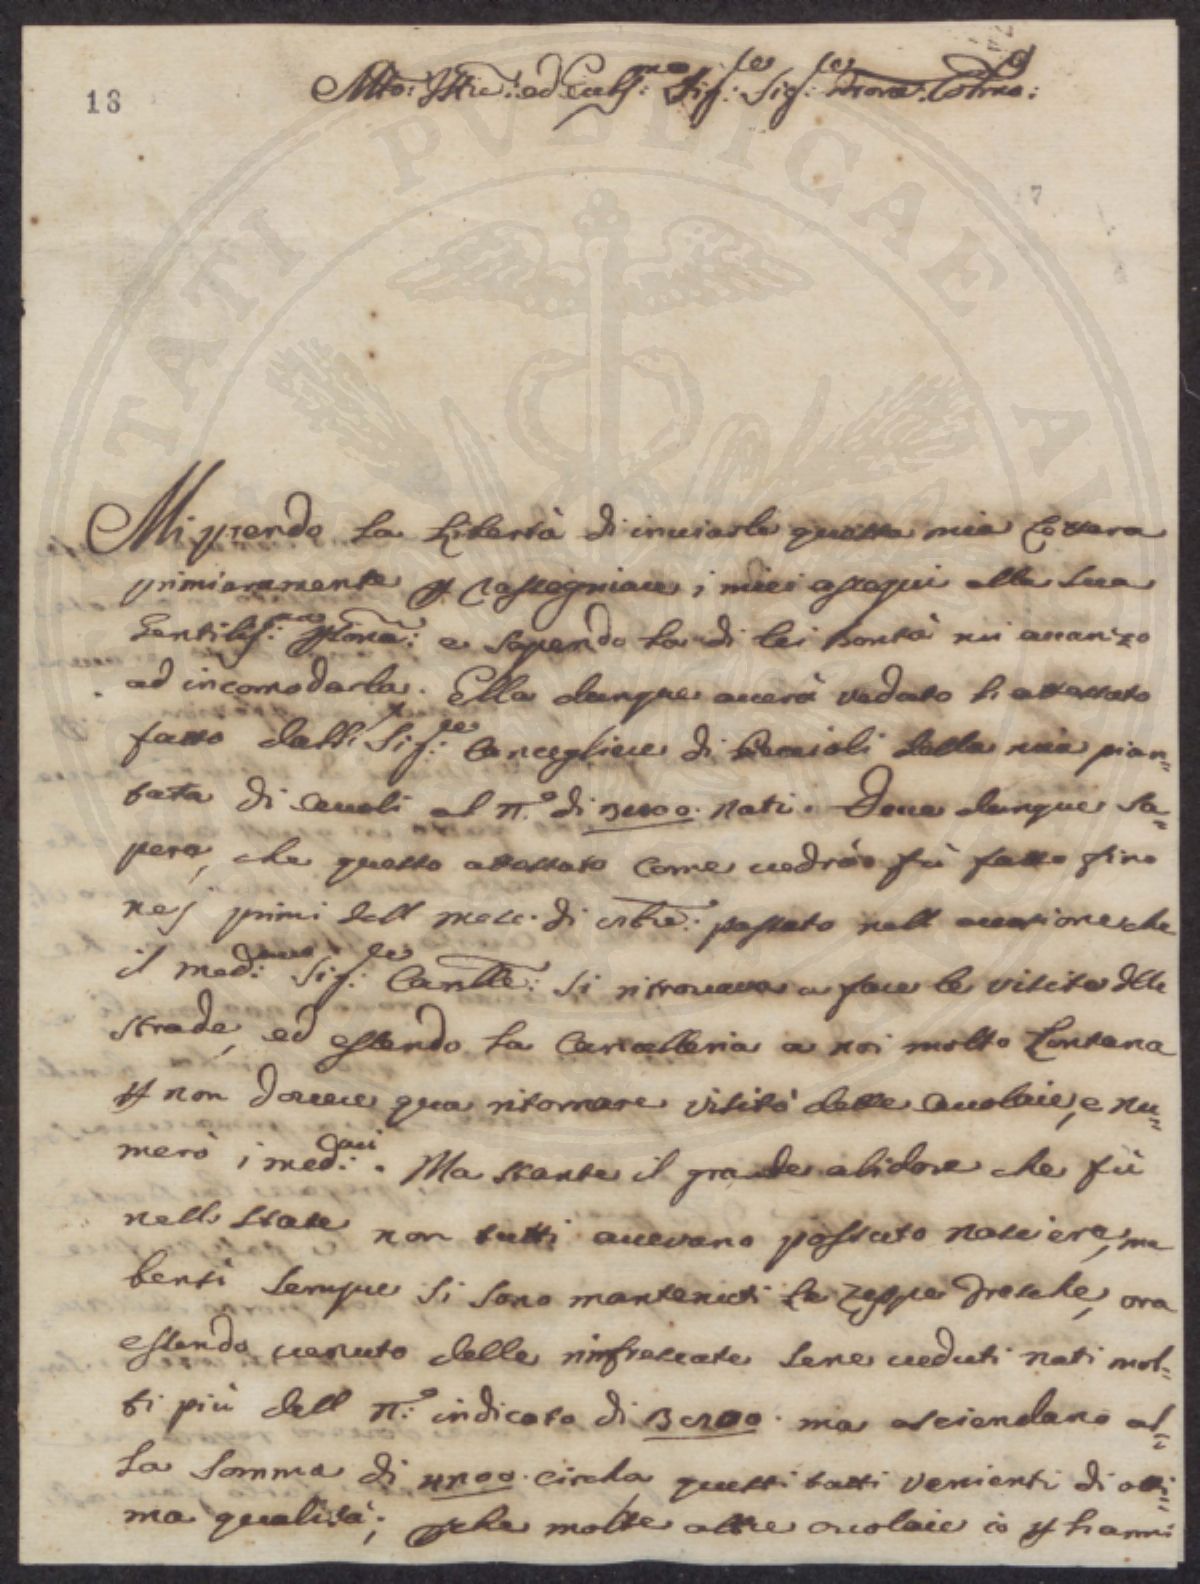 18
Illmo: Sig:re Sig:re Prone: Colmo:
7
Mi prendo la Libertà di inviarle questa mia Lettera
primieramente p rassegniare i miei ossequi alla sua
Gentiliss:ma Psona: e sapendo la di lei bontà mi avanzo
ad incomodarla. Ella dunque averà veduto li attestato
fatto dall Sig:re Canceglliere di della mia pian=
tata di Cauoli al N.º di nati. Deve dunque sa=
pere, che questo attestato come vedrà fù fatto fino
nej primi dell mese di 8bre: passato nell occasione che
il med:mo Sig:re Canlle: si ritrovava a fare le visite delle
strade, ed essendo la Cancelleria a noi molto Lontana
p non dovere qua ritornare visitò delle, e nu=
merò i med:mi. Ma stante il grande alidore che fù
nell state non tutti avevano possuto nasciere, ma
bensì sempre si sono mantenuti le zeppe fresche, ora
essendo venuto delle rinfrescate sene veduti nati mol=
ti più dell N:º indicato di ma asciendano al=
la somma di circha, questi tutti venienti di otti=
ma qualità; molte altre io p